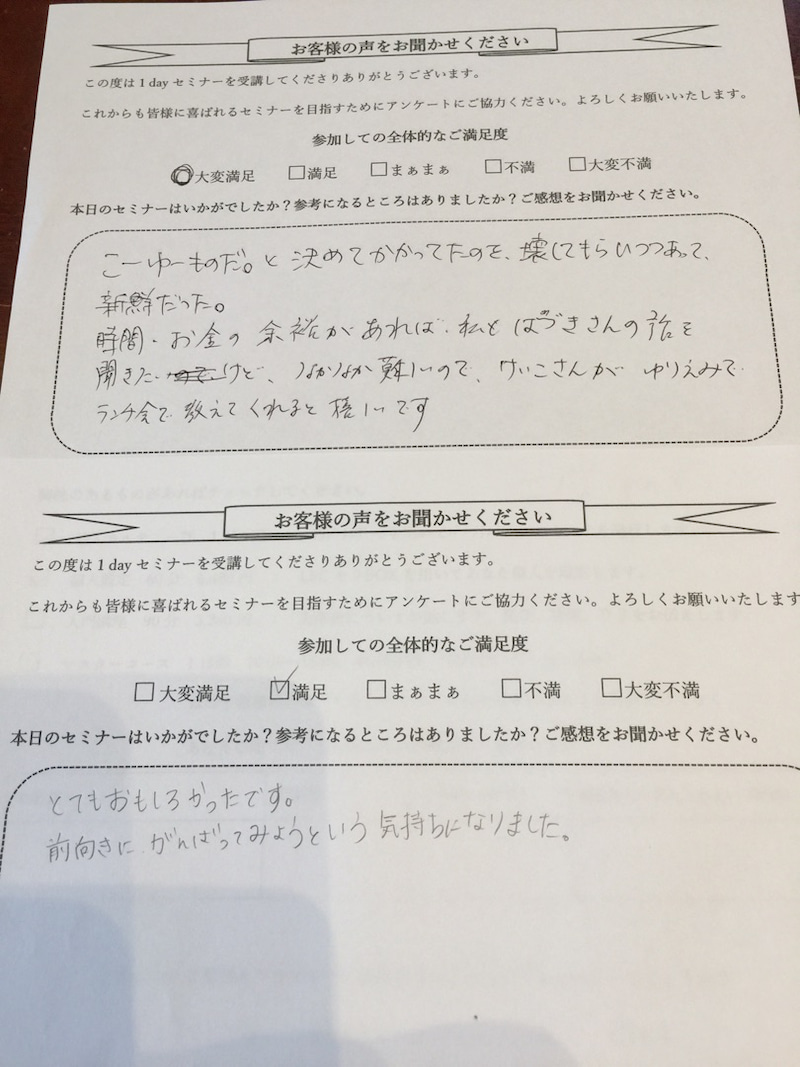 お客様の声をお聞かせください
この度は1 day セミナーを受講してくださりありがとうございます。
これからも皆様に喜ばれるセミナーを目指すためにアンケートにご協力ください。よろしくお願いいたします。
参加しての全体的なご満足度
大変満足 □満足 □まぁまぁ □不満 □大変不満
本日のセミナーはいかがでしたか？参考になるところはありましたか？ご感想をお聞かせください。
こーゆーものだ。と決めてかかってたのを、壊してもらいつつあって、
新鮮だった。
時間・お金の余裕があれば、私も はづきさんの話を
聞きたいけど、なかなか難しいので、けいこさんが ゆりえみで
ランチ会で教えてくれると嬉しいです
お客様の声をお聞かせください
この度は1 day セミナーを受講してくださりありがとうございます。
これからも皆様に喜ばれるセミナーを目指すためにアンケートにご協力ください。よろしくお願いいたします
参加しての全体的なご満足度
□大変満足 ☑満足 □まぁまぁ □不満 □大変不満
本日のセミナーはいかがでしたか？参考になるところはありましたか？ご感想をお聞かせください。
とてもおもしろかったです。
前向きに がんばってみようという気持ちになりました。